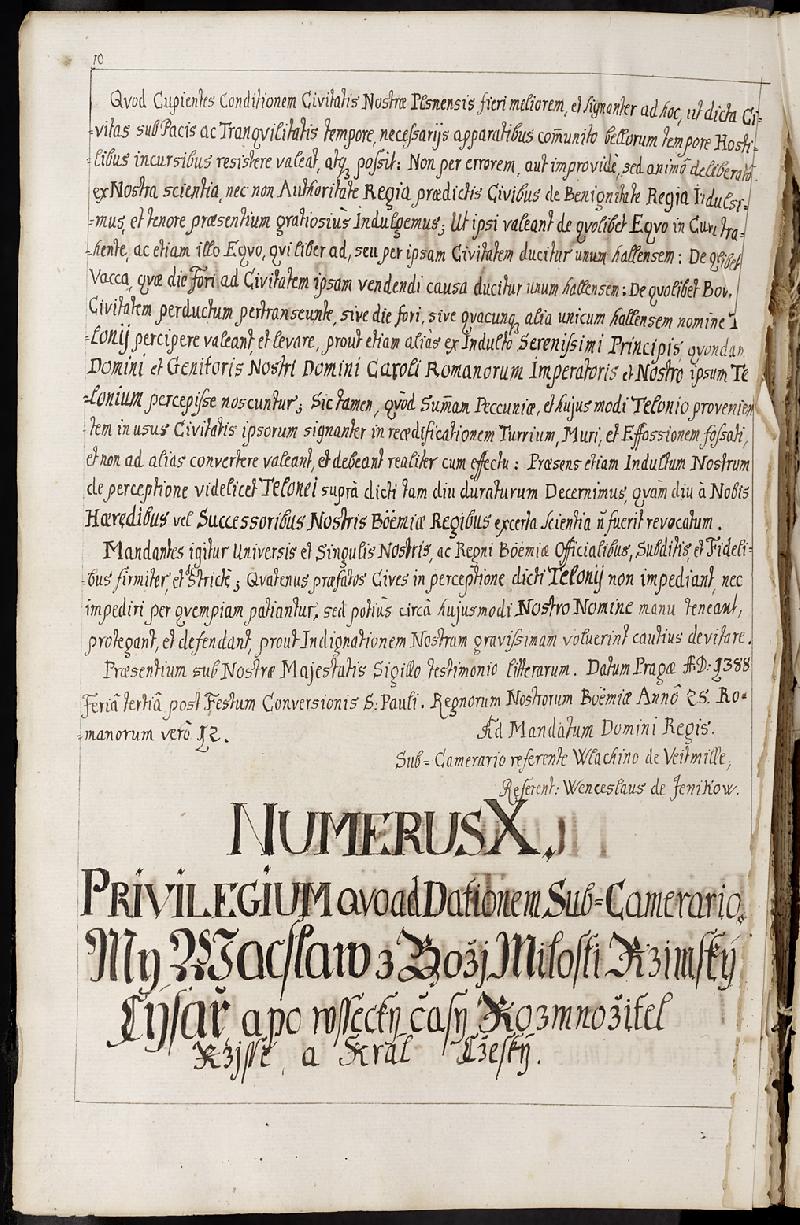 10
Qvod Cupientes Conditionem Civitatis Nostræ Plsnensis fieri meliorem, et signanter ad hoc, ut dicta Ci-
vitas sub Pacis ac Tranqvilitatis tempore, necessarijs apparatibus com̄unito bellorum tempore Hosti-
libus incursibus resistere valeat, atq₃ possit: Non per errorem, aut improvidè, sed animo deliberato
ex Nostra scientia, nec non Authoritate Regia prædictis Civibus de Benignitate Regia Indulsi-
mus, et tenore præsentium gratiosiùs Indulgemus; Ut ipsi valeant de qvolibet Eqvo in Curru tra-
hente, ac etiam illo Eqvo, qvi liber ad, seu per ipsam Civitatem ducitur unum hallensem: De qlibet
Vacca, qvæ die fori ad Civitatem ipsam vendendi causa ducitur unum hallensem: De qvolibet Bov.
Civitatem perductum pertranseunte, sive die fori, sive qvacunq₃ alia unicum hallensem nomine T
-lonij percipere valeant, et levare, prout etiam aliàs ex Indulto Serenissimi Principis qvondam
Domini et Genitoris Nostri Domini Caroli Romanorum Imperatoris et Nostro ipsum Te
-lonium percepisse noscuntur; Sic tamen, qvòd Sum̄am Peccuniæ, et hujusmodi Telonio provenien
tem in usus Civitatis ipsorum signanter in reædificationem Turrium, Muri, et Effossionem fossati,
et non ad alias convertere valeant, et debeant realiter cum effectu: Præsens etiam Indultum Nostrum
de perceptione videlicet Telonei suprà dicti tam diu duraturum Decernimus, qvam diu à Nobis
Hæredibus vel Successoribus Nostris Böëmiæ Regibus ex certa scientia ñ fuerit revocatum.
Mandantes igitur Universis et Singulis Nostris, ac Regni Böëmiæ Officialibus, Subditis, et Fideli-
bus firmiter, et stricte; Qvatenus præfatos Cives in perceptione dicti Telonij non impediant, nec
impediri per qvempiam patiantur, sed potiùs circà hujusmodi Nostro Nomine manu teneant,
protegant, et defendant, prout Indignationem Nostram gravissimam voluerint cautius devitare.
Præsentium sub Nostræ Majestatis Sigillo testimonio litterarum. Datum Pragæ AD: 1388
Feriâ tertiâ post Festum Conversionis S: Pauli. Regnorum Nostrorum Böëmiæ Annô 25. Ro-
manorum verò 12.
Ad Mandatum Domini Regis.
Sub-Camerario referente Wlachino de Veitmille,
Referent: Wenceslaus de Jenikow.
NUMERUS X.
PRIVILEGIUM qvoad Dationem Sub-Camerario.
My Wacslaw z Božj Milosti Rzimský
Cýsař a po wssecky časy Rozmnožitel
Rzjsse, a Kral Czeský.